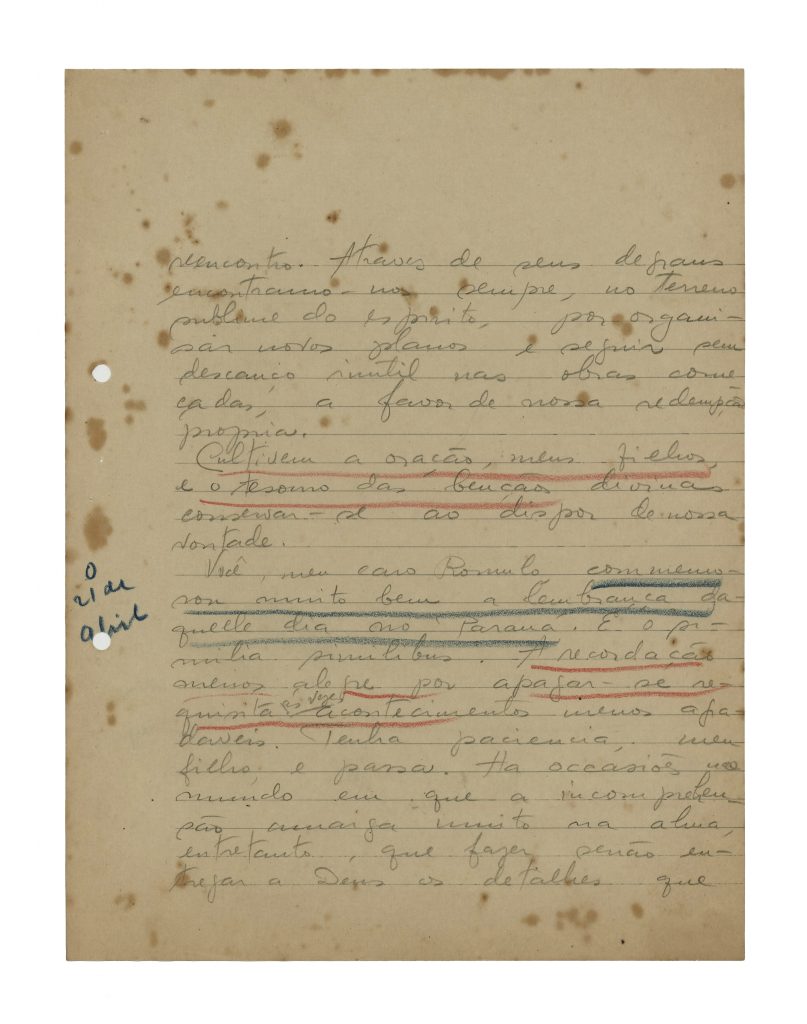 reencontro. Atraves de seus degraus
encontramo-nos sempre, no terreno
sublime do espirito, por organi-
sar novos planos e seguir sem
descanço inutil nas obras come-
çadas, a favor de nossa redempção
propria.
Cultivem a oração, meus filhos,
e o tesouro das bençãos divinas
conservar-se ao dispor de nossa
vontade.
Você, meu caro Romulo commemo-
rou muito bem a lembrança da-
quelle dia no Paraná. E o si-
milia similibus. A recordação
menos alegre por apagar-se re-
quisita às vezes acontecimentos menos
daveis. Tenha paciencia, meu
filho, e passa. Ha occasiões no
mundo em que a incomprehen-
são amarga muito na alma,
entretanto, que fazer senão en-
tregar a Deus os detalhes que
O
21 de
abril